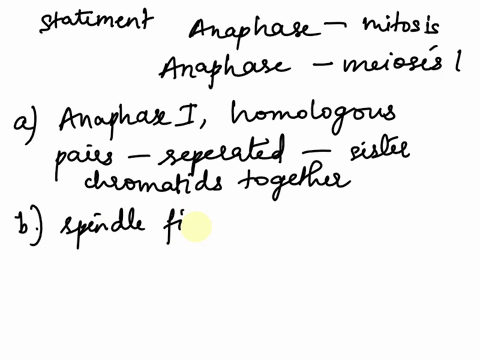 statement Anaphase – mitosis
Anaphase – meiosis I
a) Anaphase I, homologous
pairs – seperated – sister
chromatids together
b.) spindle fi